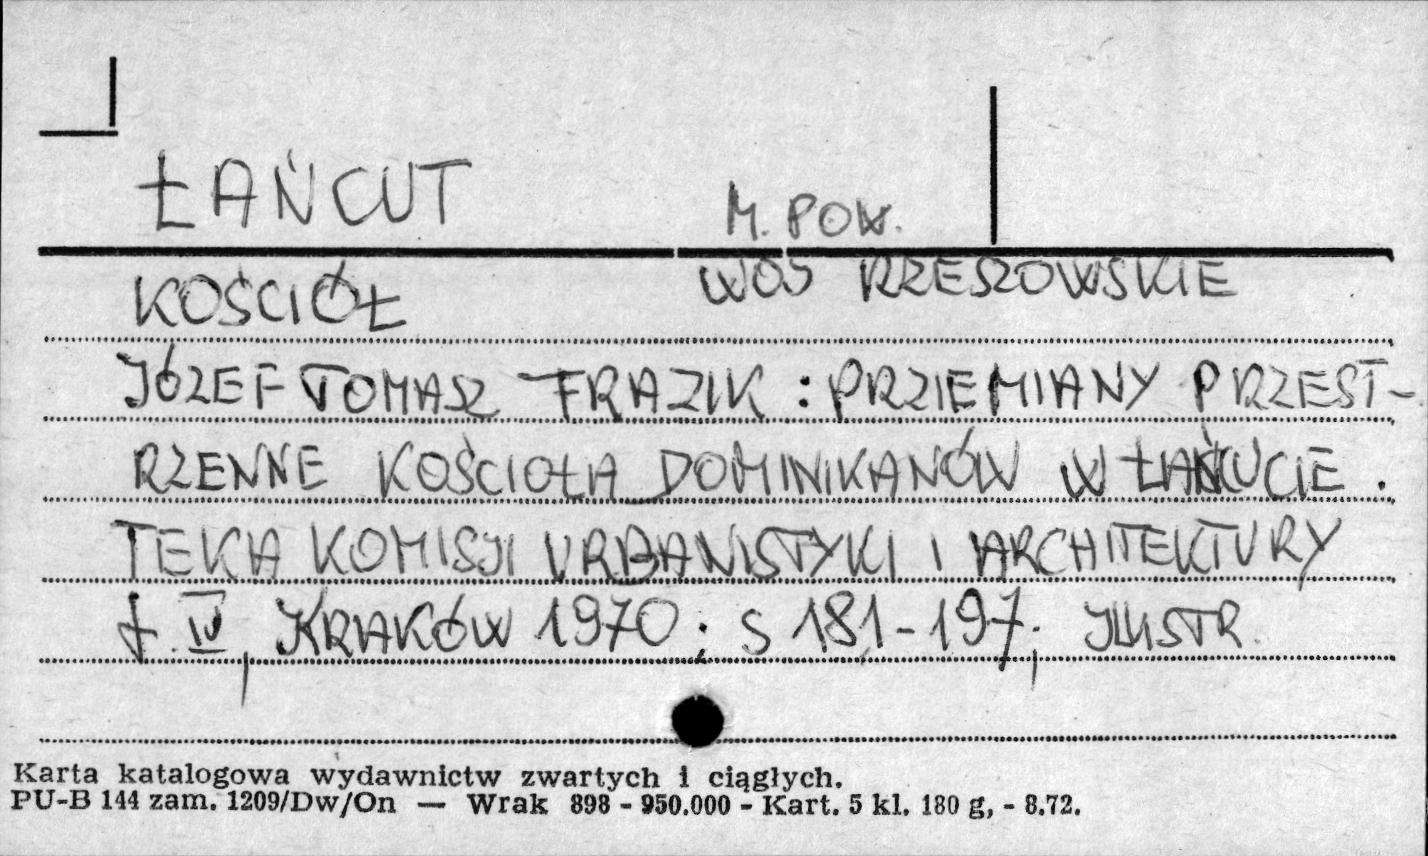 ŁAŃCUT M. POW.
KOŚCIÓŁ WOJ RZESZOWSKIE
JÓZEF TOMASZ FRAZIK : PRZIEMIANY PRZEST-
RZENNE KOŚCIOŁA DOMINIKANÓW W ŁAŃCUCIE.
TEKA KOMISJI URBANISTYKI I ARCHITEKTURY
t. IV, KRAKÓW 1970; S 181-197; ILUSTR.
Karta katalogowa wydawnictw zwartych i ciągłych.
PU-B 144 zam. 1209/Dw/On — Wrak 898 - 950.000 - Kart. 5 kl. 180 g, - 8.72.